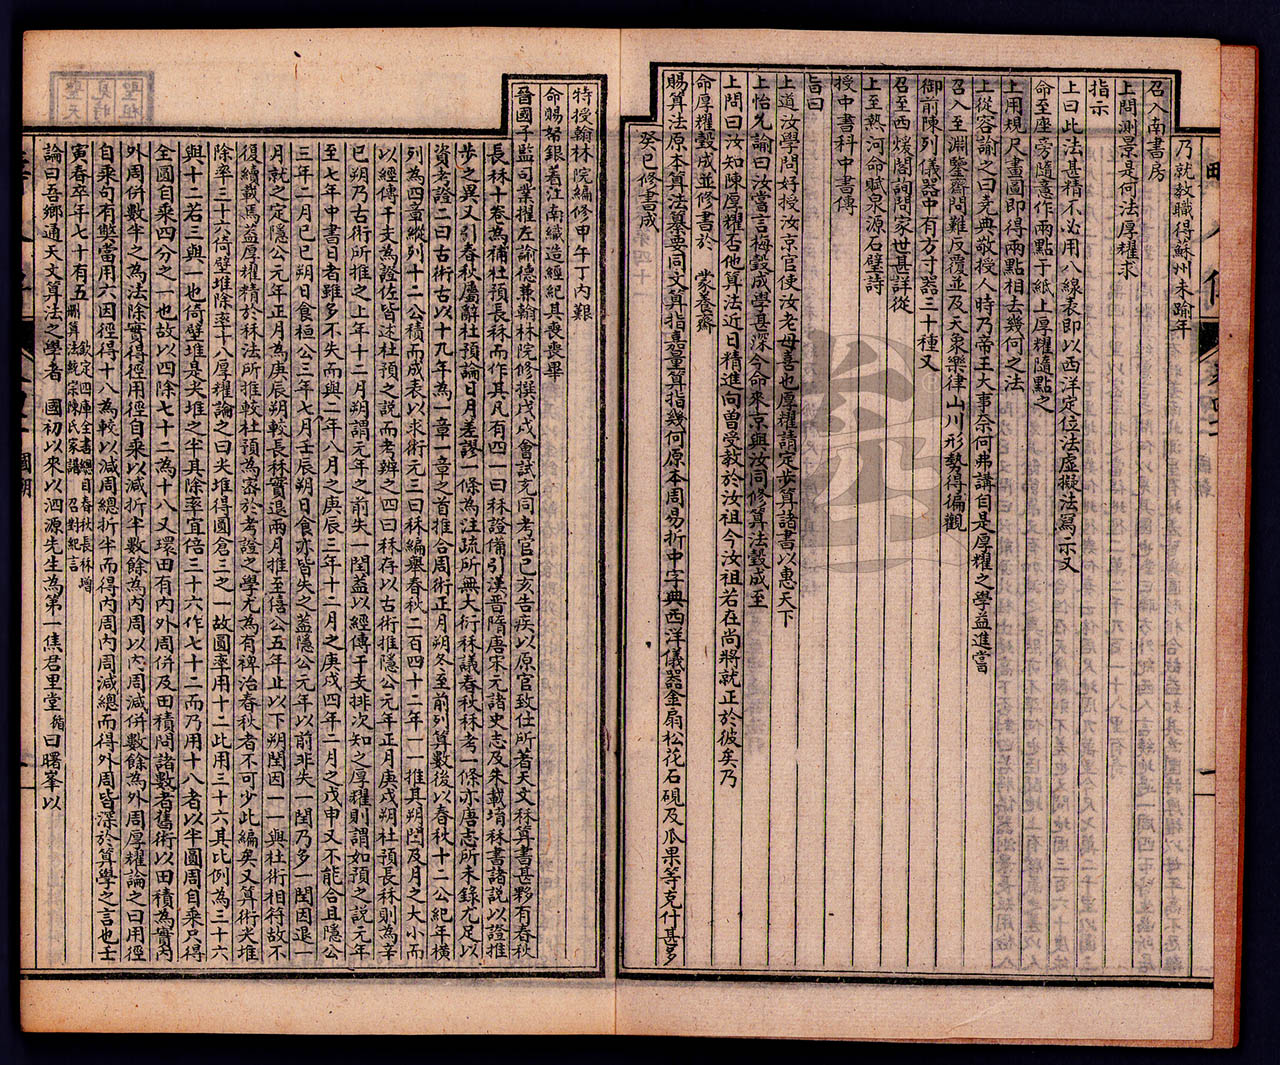 乃就教職得蘇州未踰年
召入南書房
上問測景是何法厚耀求
指示
上曰此法甚精不必用八線表即以西洋定位法虛擬法寫示又
命至座旁隨意作兩點于紙上厚耀隨點之
上用規尺畫圖即得兩點相去幾何之法
上從容諭之曰堯典敬授人時乃帝王大事奈何弗講自是厚耀之學益進嘗
召入至淵鑒齋問難反覆並及天象樂律山川形勢得徧觀
御前陳列儀器中有方寸器三十種又
召至西煖閣詞問家世甚詳從
上至熱河命賦泉源石壁詩
授中書科中書傳
旨曰
上道汝學問好授汝京官使汝老母喜也厚耀請定步算諸書以惠天下
上怡允論曰汝嘗言梅瑴成學甚深今命來京與汝同修算法瑴成至
上問曰汝知陳厚耀否他算法近日精進向曾受教於汝祖今汝祖若在尚將就正於彼矣乃
命厚耀瑴成並修書於 蒙養齋
賜算法原本算法纂要同文算指嘉量算指幾何原本周易折中字典西洋儀器金扇松花石硯及瓜果等克什甚多
癸巳修書成
特授翰林院編修甲午丁內艱
命賜帑銀著江南織造經紀其喪喪畢
晉國子監司業擢左諭德兼翰林院修撰戊戌會試充同考官己亥告疾以原官致仕所著天文秝算書甚夥有春秋
長秝十卷為補杜預長秝而作其凡有四一曰秝證備引漢晉隋唐宋元諸史志及朱載堉秝書諸說以證推
步之異又引春秋屬辭杜預論日月差謬一條為注疏所無大衍秝議春秋秝考一條亦唐志所未錄尤足以
資考證二曰古術古以十九年為一章一章之首推合周術正月朔冬至前列算數後以春秋十二公紀年橫
列為四章縱列十二公積而成表以求術元三曰秝編舉春秋二百四十二年一一推其朔閏及月之大小而
以經傳干支為證佐皆述杜預之說而考辨之四曰秝存以古術推隱公元年正月庚戌朔杜預長秝則為辛
巳朔乃古術所推之上年十二月朔謂元年之前失一閏蓋以經傳干支排次知之厚耀則謂如預之說元年
至七年中書日者雖多不失而與二年八月之庚辰三年十二月之庚戌四年二月之戊申又不能合且隱公
三年二月己巳朔日食桓公三年七月壬辰朔日食亦皆失之蓋隱公元年以前非失一閏乃多一閏因退一
月就之定隱公元年正月為庚辰朔較長秝實退兩月推至僖公五年止以下朔閏因一一與杜術相符故不
復續載焉蓋厚耀精於秝法所推較杜預為密於考證之學尤為有裨治春秋者不可少此編矣又算術尖堆
除率三十六倚壁堆除率十八厚耀論之曰尖堆得圓倉三之一故圓率用十二此用三十六其比例為三十六
與十二若三與一也倚壁堆是尖堆之半其除率宜倍三十六作七十二而乃用十八者以半圓周自乘只得
全圓自乘四分之一也故以四除七十二為十八又環田有內外周併及田積問諸數者舊術以田積為實內
外周併數半之為法除實得徑用徑自乘以減折半數餘為內周以內周減併數餘為外周厚耀論之曰用徑
自乘句有憋當用六因徑得十八為較以減周總折半而得內周內周減總而得外周皆深於算學之言也壬
寅春卒年七十有五欽定四庫全書總目春秋長秝增刪算法統宗陳氏家譜召對紀言
論曰吾鄉通天文算法之學者 國初以來以泗源先生為第一焦君里堂循曰曙峯以